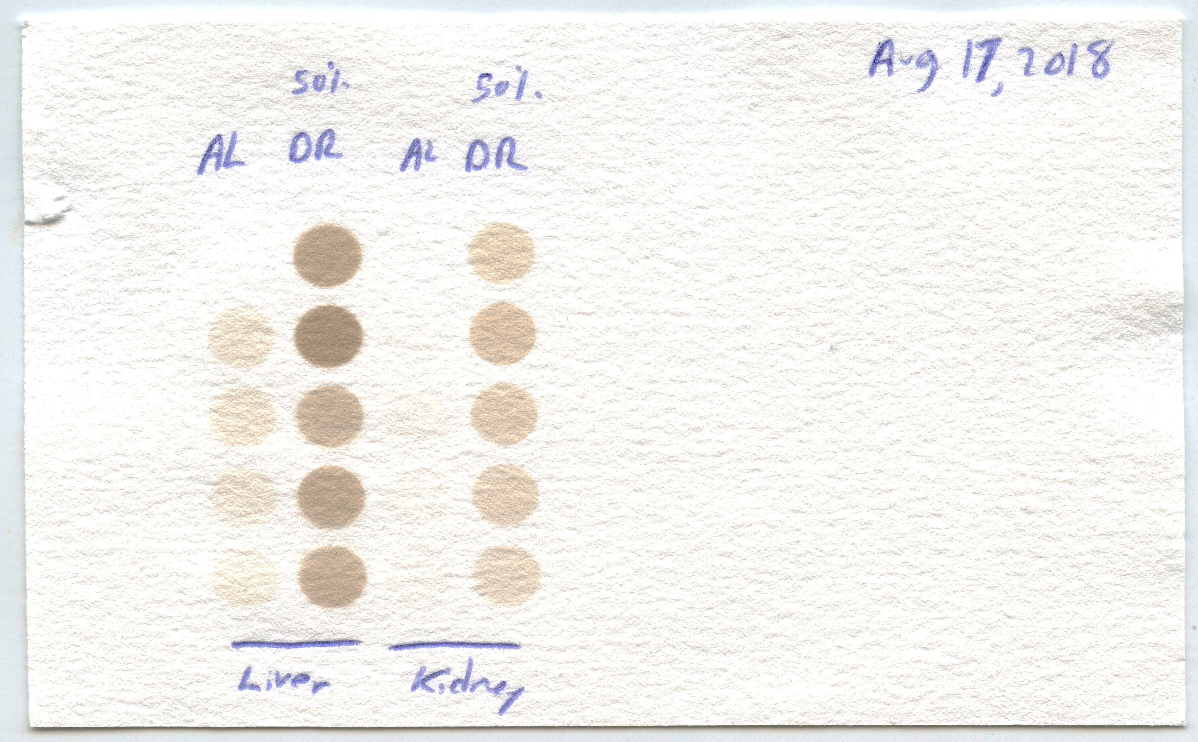 Aug 17, 2018
50% 50%.
AL DR AL DR
Liver Kidney